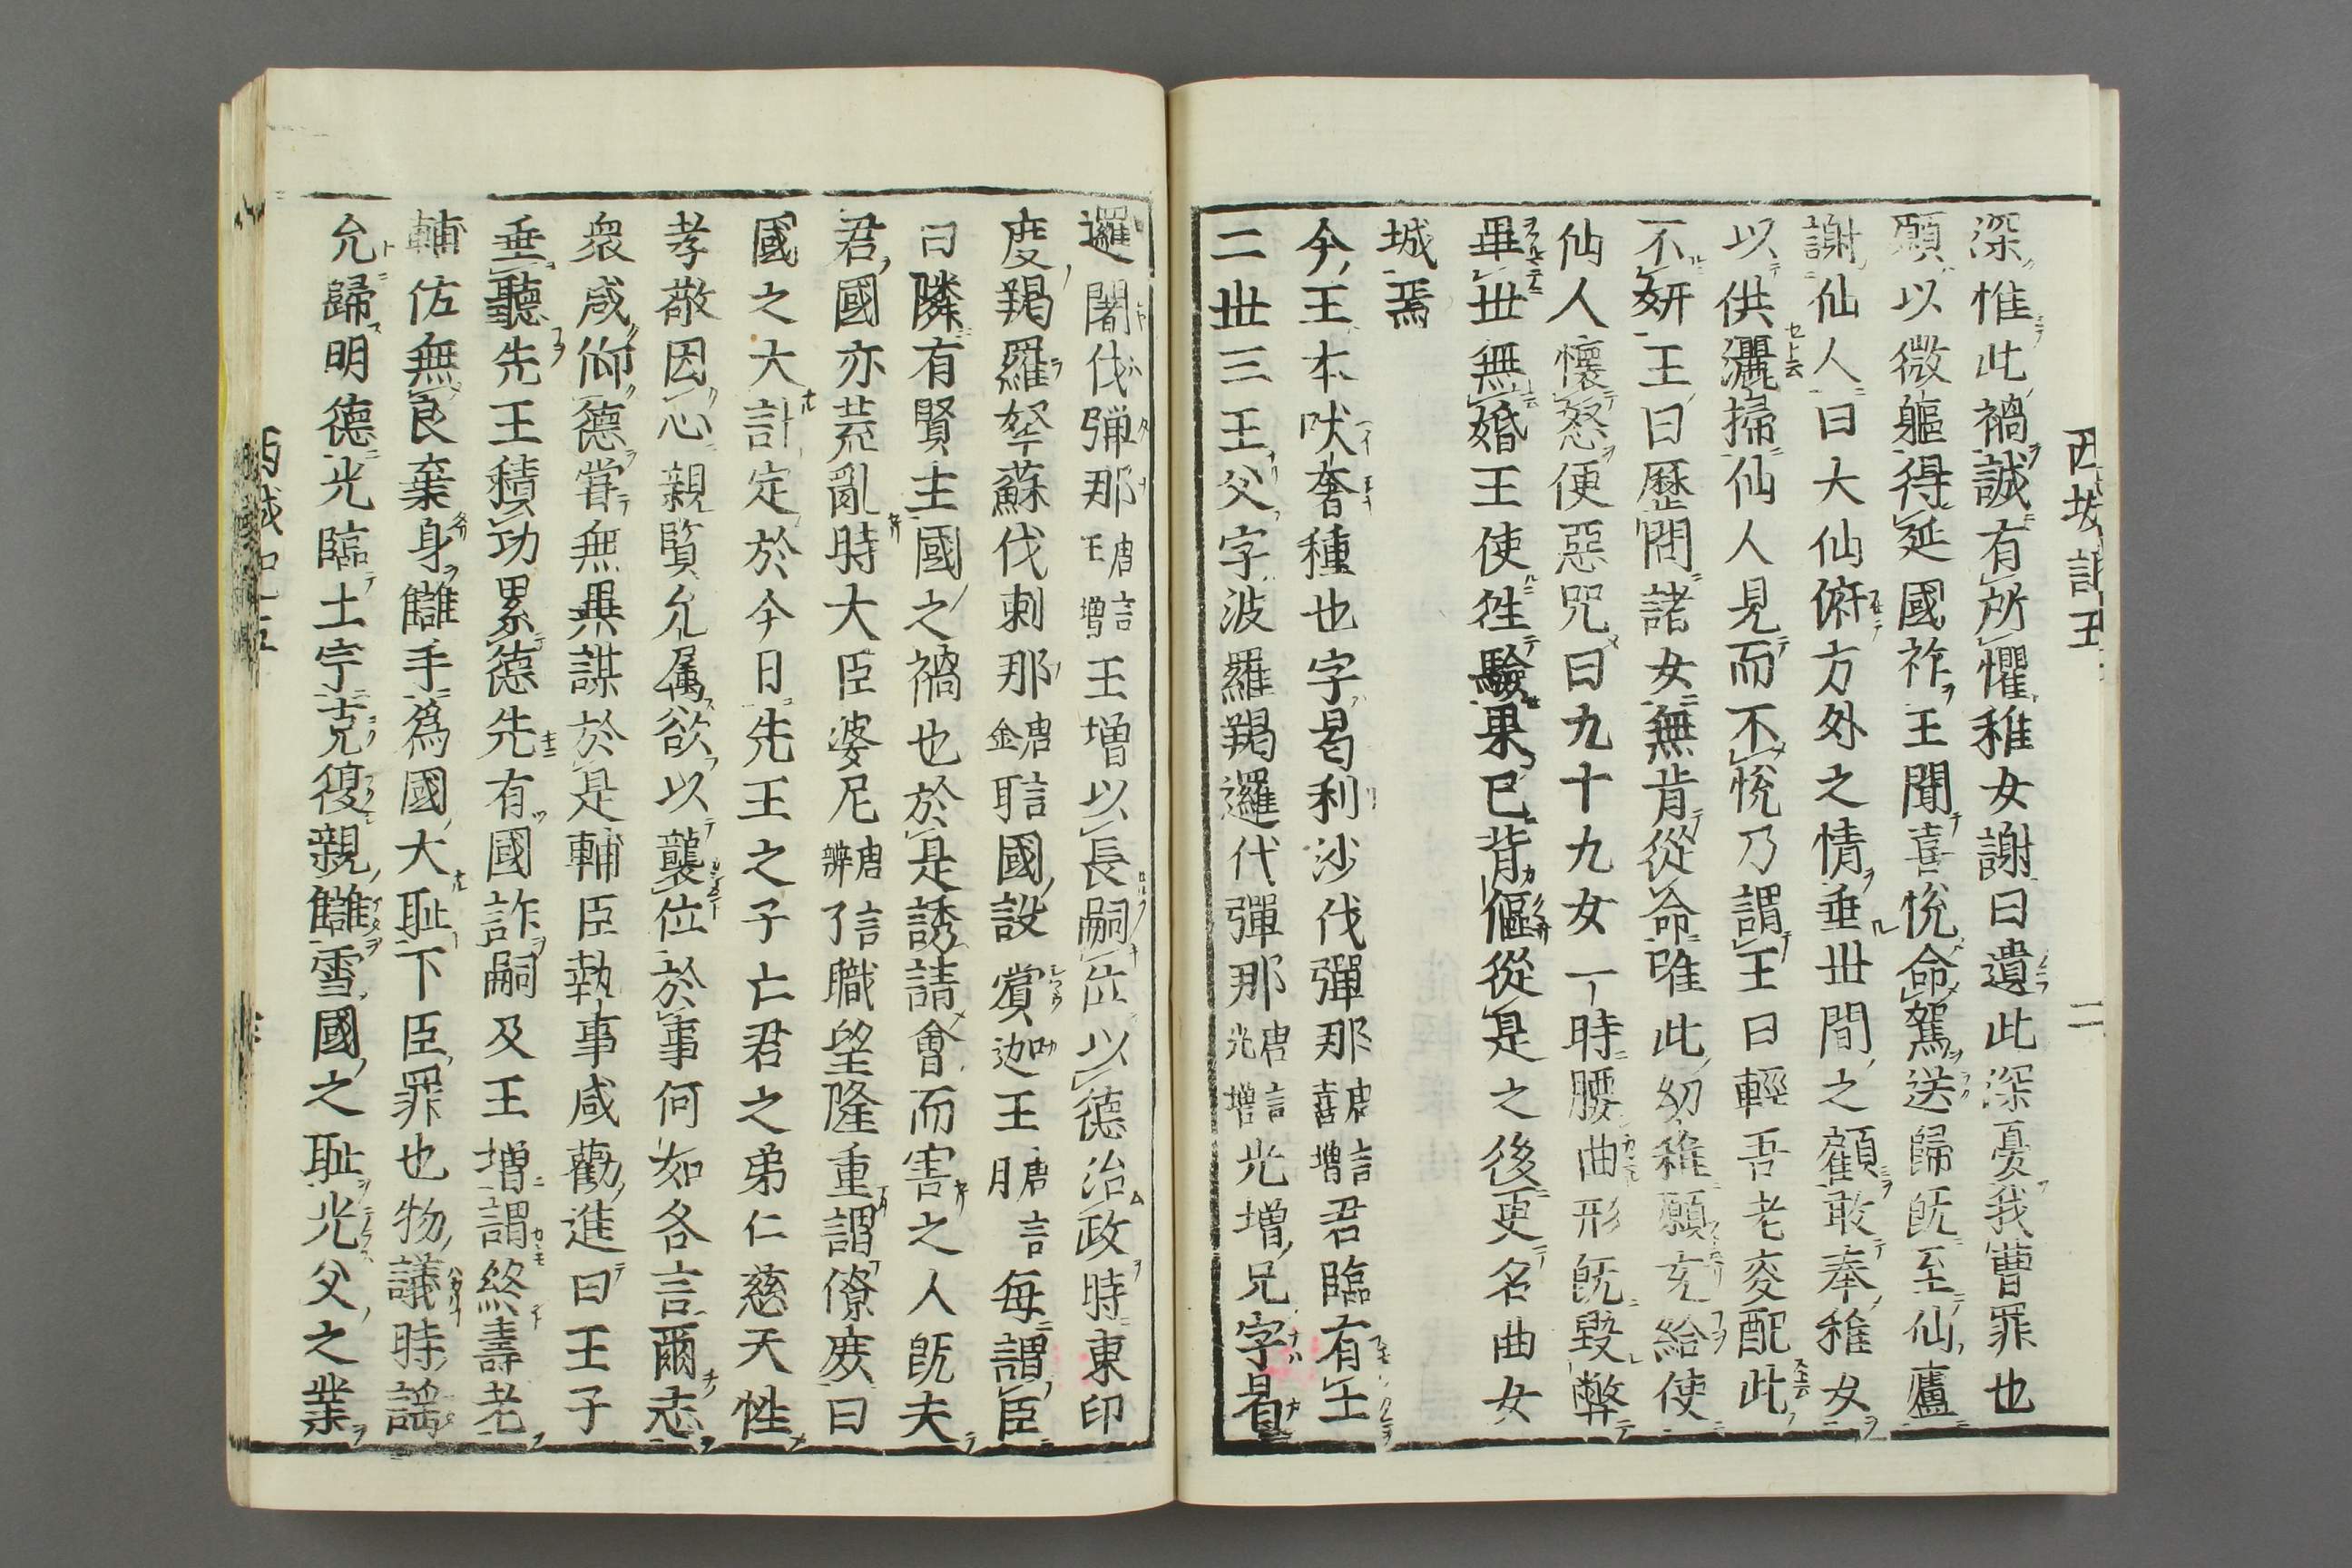 西域記五　二
深惟此禍誠有所懼稚女謝曰遺此深憂我曹罪也
願以微軀得延國祚王聞喜悅命駕送歸旣至仙廬
謝仙人曰大仙俯方外之情垂世間之顧敢奉稚女
以供灑掃仙人見而不悅乃謂王曰輕吾老叟配此
不妍王曰歷問諸女無肯從命唯此幼稚願充給使
仙人懷怒便惡咒曰九十九女一時腰曲形旣毀弊
畢世無婚王使往驗果已背傴從是之後更名曲女
城焉
今王本吠奢種也字曷利沙伐彈那唐言喜增君臨有土
二世三王父字波羅羯邏代彈那唐言光增光增兄字曷
邏闍伐彈那唐言王增王增以長嗣位以德治政時東印
度羯羅拏蘇伐剌那唐言金耳國設賞迦王唐言月每謂臣
曰隣有賢主國之禍也於是誘請會而害之人旣失
君國亦荒亂時大臣婆尼唐言辨了職望隆重謂僚庶曰
國之大計定於今日先王之子亡君之弟仁慈天性
孝敬因心親賢允属欲以襲位於事何如各言爾志
衆咸仰德嘗無異謀於是輔臣執事咸勸進曰王子
垂聽先王積功累德先有國祚嗣及王增謂終壽老
輔佐無良棄身讎手爲國大恥下臣罪也物議時謡
允歸明德光臨土宇克復親讎雪國之恥光父之業
西域記五